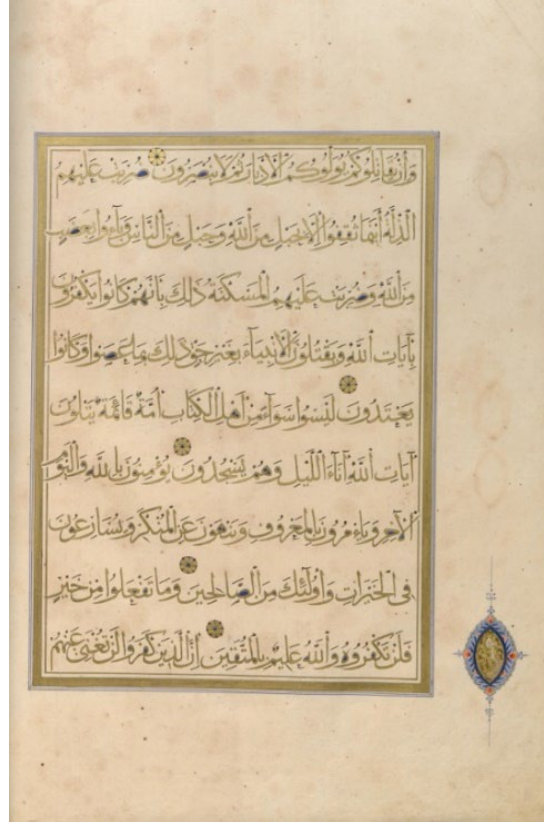 وَإِنْ يُقَاتِلُوكُمْ يُوَلُّوكُمُ الْأَدْبَارَ ثُمَّ لَا يُنْصَرُونَ ضُرِبَتْ عَلَيْهِمُ
الذِّلَّةُ أَيْنَمَا ثُقِفُوا إِلَّا بِحَبْلٍ مِنَ اللَّهِ وَحَبْلٍ مِنَ النَّاسِ وَبَاءُوا بِغَضَبٍ
مِنَ اللَّهِ وَضُرِبَتْ عَلَيْهِمُ الْمَسْكَنَةُ ذَلِكَ بِأَنَّهُمْ كَانُوا يَكْفُرُونَ
بِآيَاتِ اللَّهِ وَيَقْتُلُونَ الْأَنْبِيَاءَ بِغَيْرِ حَقٍّ ذَلِكَ بِمَا عَصَوْا وَكَانُوا
يَعْتَدُونَ لَيْسُوا سَوَاءً مِنْ أَهْلِ الْكِتَابِ أُمَّةٌ قَائِمَةٌ يَتْلُونَ
آيَاتِ اللَّهِ آنَاءَ اللَّيْلِ وَهُمْ يَسْجُدُونَ يُؤْمِنُونَ بِاللَّهِ وَالْيَوْمِ
الْآخِرِ وَيَأْمُرُونَ بِالْمَعْرُوفِ وَيَنْهَوْنَ عَنِ الْمُنْكَرِ وَيُسَارِعُونَ
فِي الْخَيْرَاتِ وَأُولَئِكَ مِنَ الصَّالِحِينَ وَمَا تَفْعَلُوا مِنْ خَيْرٍ
فَلَنْ تُكْفَرُوهُ وَاللَّهُ عَلِيمٌ بِالْمُتَّقِينَ إِنَّ الَّذِينَ كَفَرُوا لَنْ تُغْنِيَ عَنْهُمْ